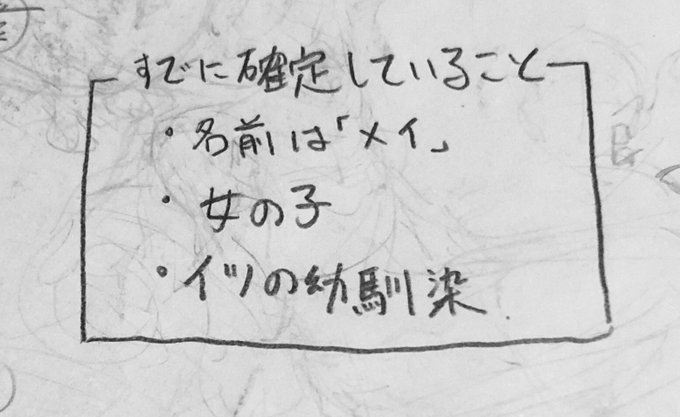 すでに確定していること
・名前は「メイ」
・女の子
・イツの幼馴染